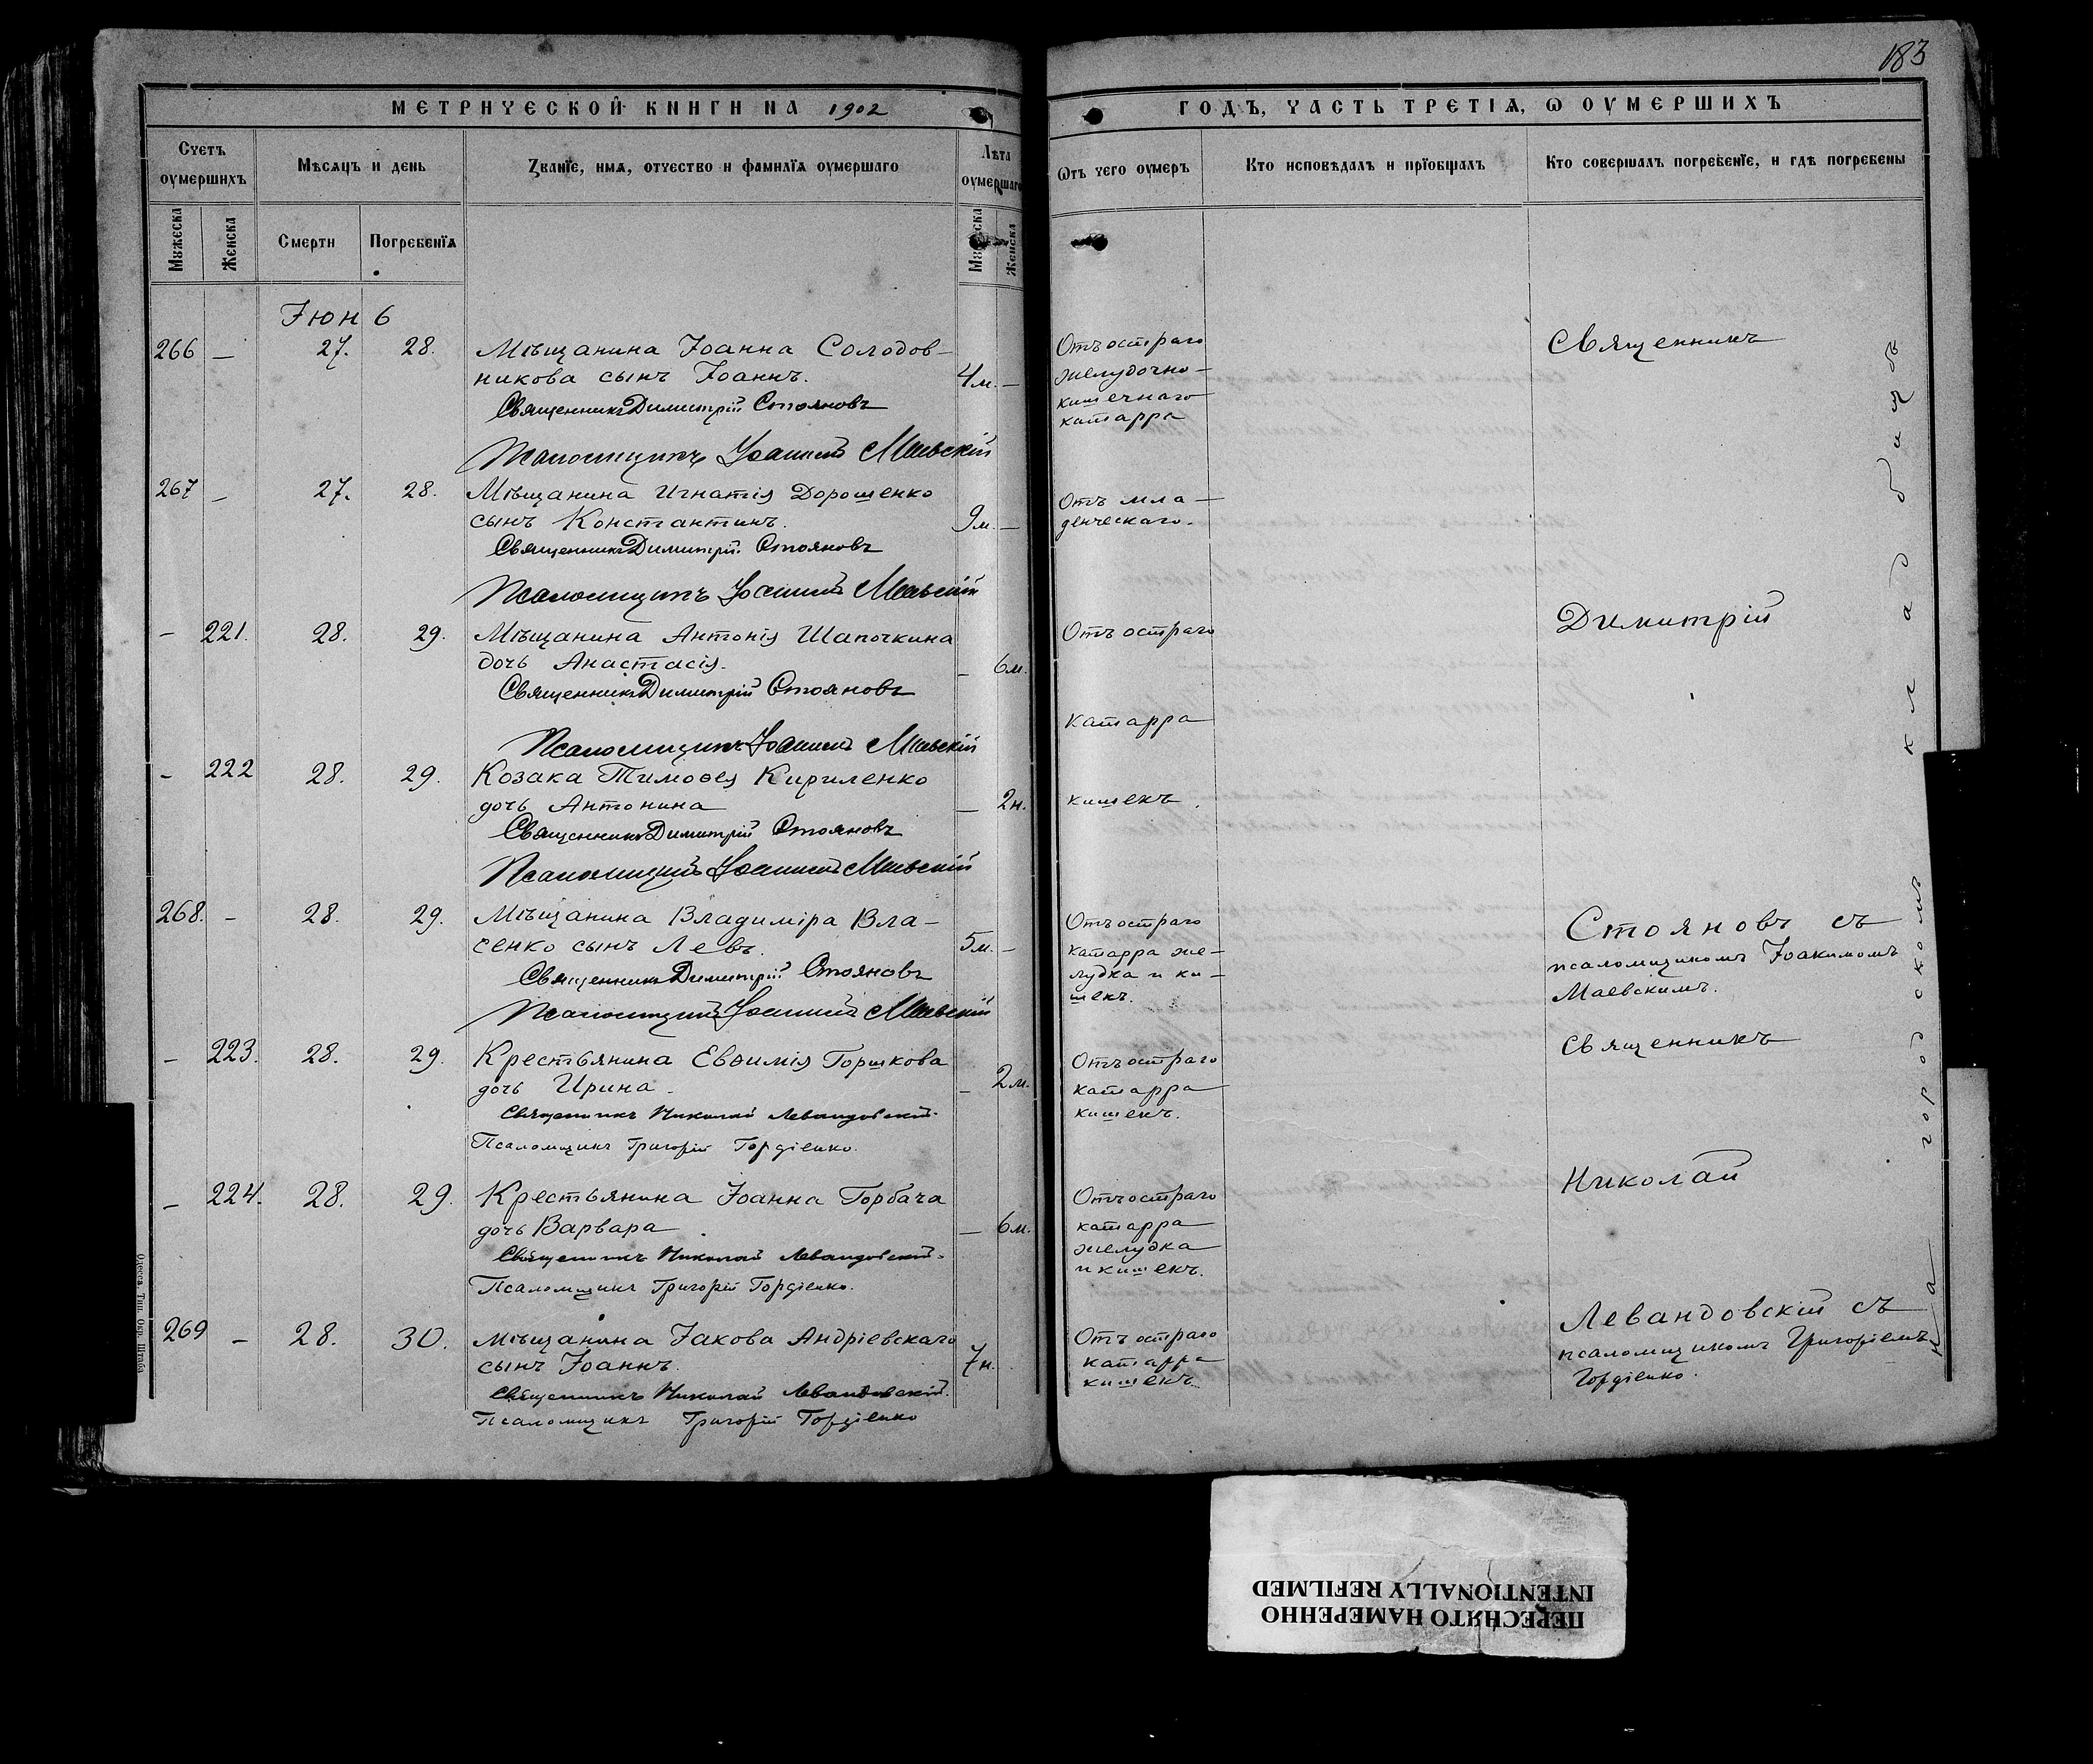 183
МЕТРИЧЕСКОЙ КНИГИ НА 1902
ГОДЪ, ЧАСТЬ ТРЕТІѦ, Ѡ ОУМЕРШИХЪ
Счетъ оумершихъ
Мѣсѧцъ и день
Званїе, имѧ, отчество и фамилїѧ оумершаго
Лѣта оумершаго
Ѿтъ чего оумеръ
Кто исповѣдалъ и прїобщалъ
Кто совершалъ погребенїе, и гдѣ погребены
Мꙋжеска
Женска
Смерти
Погребенїѧ
Мꙋжеска
Женска
Іюнь
266 — 27. 28. Мѣщанина Іоанна Солодов-
никова сынъ Іоаннъ. 4м. —
Священникъ Димитрій Стояновъ
Псаломщикъ Іоакимъ Маевскій
Отъ остраго
желудочно-
кишечнаго
катарра
267 — 27. 28. Мѣщанина Игнатія Дорошенко
сынъ Константинъ. 9м. —
Священникъ Димитрій Стояновъ
Псаломщикъ Іоакимъ Маевскій
Отъ мла-
денческаго.
— 221. 28. 29. Мѣщанина Антонія Шапочкина
дочь Анастасія. — 6м.
Священникъ Димитрій Стояновъ
Псаломщикъ Іоакимъ Маевскій
Отъ остраго
катарра
— 222 28. 29. Козака Тимоѳея Кириленко
дочь Антонина — 2н.
Священникъ Димитрій Стояновъ
Псаломщикъ Іоакимъ Маевскій
кишекъ.
268. — 28. 29. Мѣщанина Владиміра Вла-
сенко сынъ Левъ. 5м. —
Священникъ Димитрій Стояновъ
Псаломщикъ Іоакимъ Маевскій
Отъ остраго
катарра же-
лудка и ки-
шекъ.
— 223. 28. 29. Крестьянина Евѳимія Горшкова
дочь Ирина — 2м.
Священникъ Николай Левандовскій.
Псаломщикъ Григорій Гордіенко.
Отъ остраго
катарра
кишекъ.
— 224. 28. 29. Крестьянина Іоанна Горбача
дочь Варвара — 6м.
Священникъ Николай Левандовскій.
Псаломщикъ Григорій Гордіенко.
Отъ остраго
катарра
желудка
и кишекъ.
269 — 28. 30. Мѣщанина Іакова Андріевскаго
сынъ Іоаннъ. 7н.
Священникъ Николай Левандовскій.
Псаломщикъ Григорій Гордіенко
Отъ остраго
катарра
кишекъ
Священникъ
Димитрій
Стояновъ съ
псаломщикомъ Іоакимомъ
Маевскимъ.
Священникъ
Николай
Левандовскій съ
псаломщикомъ Григоріемъ
Гордіенко.
на городскомъ кладбищѣ
Одесса. Тип. Окр. Штаба
ПЕРЕСНЯТО НАМЕРЕННО
INTENTIONALLY REFILMED